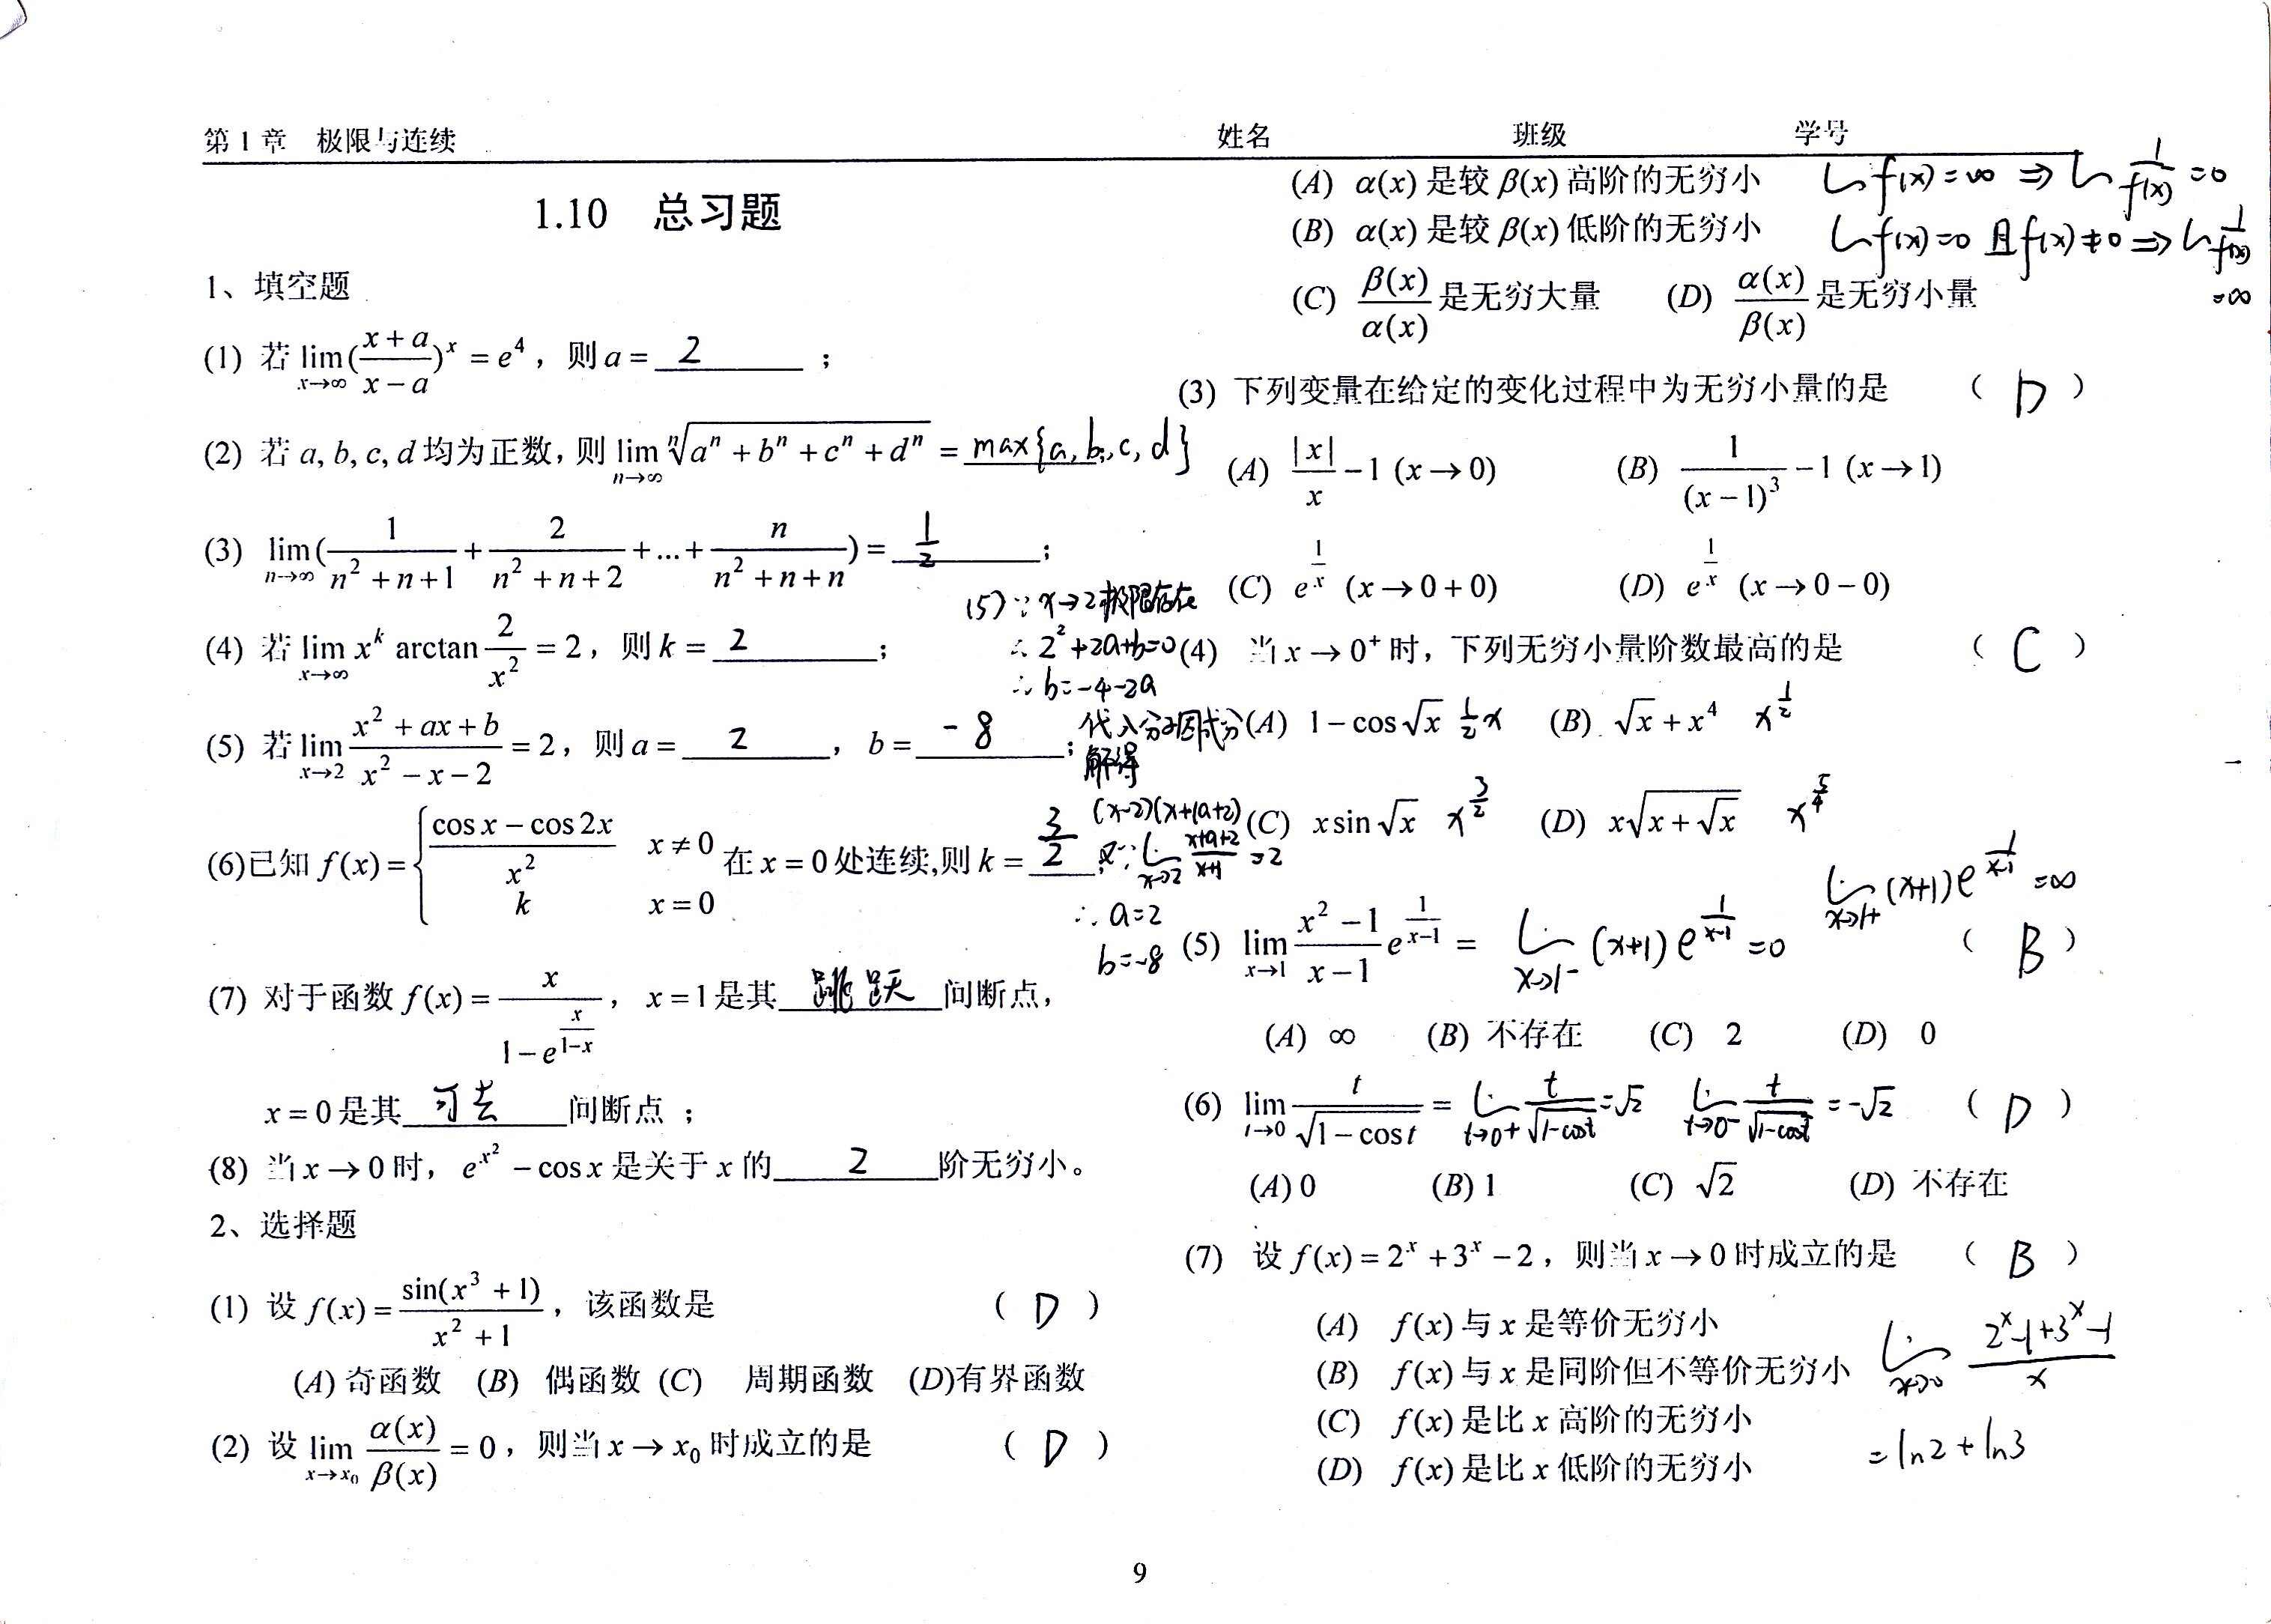 第 1 章 极限与连续 姓名 班级 学号
1.10 总习题
1、填空题
(1) 若 lim_{x→∞} ((x+a)/(x−a))^x = e^4，则 a = 2 ；
(2) 若 a, b, c, d 均为正数，则 lim_{n→∞} ⁿ√(a^n + b^n + c^n + d^n) = max{a, b, c, d}
(3) lim_{n→∞} (1/(n^2+n+1) + 2/(n^2+n+2) + ... + n/(n^2+n+n)) = 1/2 ；
(4) 若 lim_{x→∞} x^k arctan 2/x^2 = 2，则 k = 2 ；
(5) 若 lim_{x→2} (x^2+ax+b)/(x^2−x−2) = 2，则 a = 2 ，b = −8 ；
(5) ∵ x→2极限存在
∴ 2^2+2a+b=0
∴ b=-4-2a
代入分子因式分
解得
(x-2)(x+(a+2))
又∵ lim_{x→2} (x+a+2)/(x+1) = 2
∴ a=2
b=-8
(6)已知 f(x) = { (cos x − cos 2x)/x^2 x≠0
k x=0 在 x=0 处连续,则 k = 3/2
(7) 对于函数 f(x) = x/(1−e^{x/(1−x)})，x=1是其 跳跃 间断点，
x=0是其 可去 间断点 ；
(8) 当 x→0 时，e^{x^2} − cos x 是关于 x 的 2 阶无穷小。
2、选择题
(1) 设 f(x) = sin(x^3+1)/(x^2+1)，该函数是 ( D )
(A) 奇函数 (B) 偶函数 (C) 周期函数 (D)有界函数
(2) 设 lim_{x→x_0} α(x)/β(x) = 0，则当 x→x_0 时成立的是 ( D )
(A) α(x) 是较 β(x) 高阶的无穷小
(B) α(x) 是较 β(x) 低阶的无穷小
(C) β(x)/α(x) 是无穷大量 (D) α(x)/β(x) 是无穷小量
lim f(x)=∞ ⇒ lim 1/f(x) =0
lim f(x)=0 且 f(x)≠0 ⇒ lim 1/f(x)
=∞
(3) 下列变量在给定的变化过程中为无穷小量的是 ( D )
(A) |x|/x − 1 (x→0) (B) 1/(x−1)^3 − 1 (x→1)
(C) e^{1/x} (x→0+0) (D) e^{1/x} (x→0−0)
(4) 当 x→0⁺ 时，下列无穷小量阶数最高的是 ( C )
(A) 1−cos√x 1/2 x (B) √x + x^4 x^{1/2}
(C) x sin√x x^{3/2} (D) x√(x+√x) x^{5/4}
(5) lim_{x→1} (x^2−1)/(x−1) e^{1/(x−1)} = lim_{x→1-} (x+1)e^{1/(x-1)} =0 lim_{x→1+} (x+1)e^{1/(x-1)} =∞ ( B )
(A) ∞ (B) 不存在 (C) 2 (D) 0
(6) lim_{t→0} t/√(1−cos t) = lim_{t→0+} t/√(1-cost) =√2 lim_{t→0-} t/√(1-cost) =-√2 ( D )
(A) 0 (B) 1 (C) √2 (D) 不存在
(7) 设 f(x) = 2^x + 3^x − 2，则当 x→0 时成立的是 ( B )
(A) f(x) 与 x 是等价无穷小
(B) f(x) 与 x 是同阶但不等价无穷小
(C) f(x) 是比 x 高阶的无穷小
(D) f(x) 是比 x 低阶的无穷小
lim_{x→0} (2^x-1+3^x-1)/x
= ln2 + ln3
9